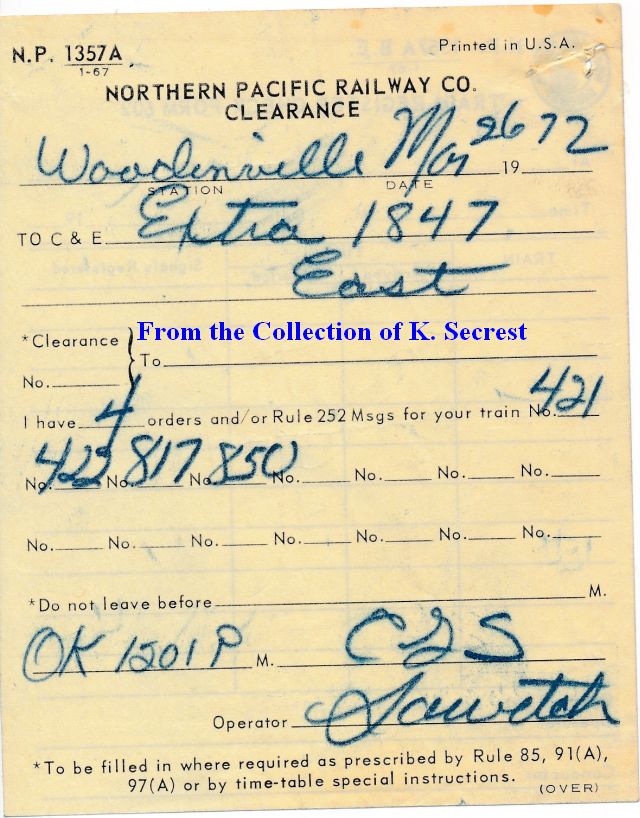 N.P. 1357A Printed in U.S.A.
1-67
NORTHERN PACIFIC RAILWAY CO.
CLEARANCE
Woodinville Mar 26 19 72
STATION DATE
TO C & E Extra 1847
East
*Clearance From the Collection of K. Secrest
To
No.
I have 4 orders and/or Rule 252 Msgs for your train No. 421
No. 422 No. 817 No. 850 No. No. No. No.
No. No. No. No. No. No. No.
*Do not leave before M.
OK 1201 P M. CGS
Operator
*To be filled in where required as prescribed by Rule 85, 91(A),
97(A) or by time-table special instructions.
(OVER)